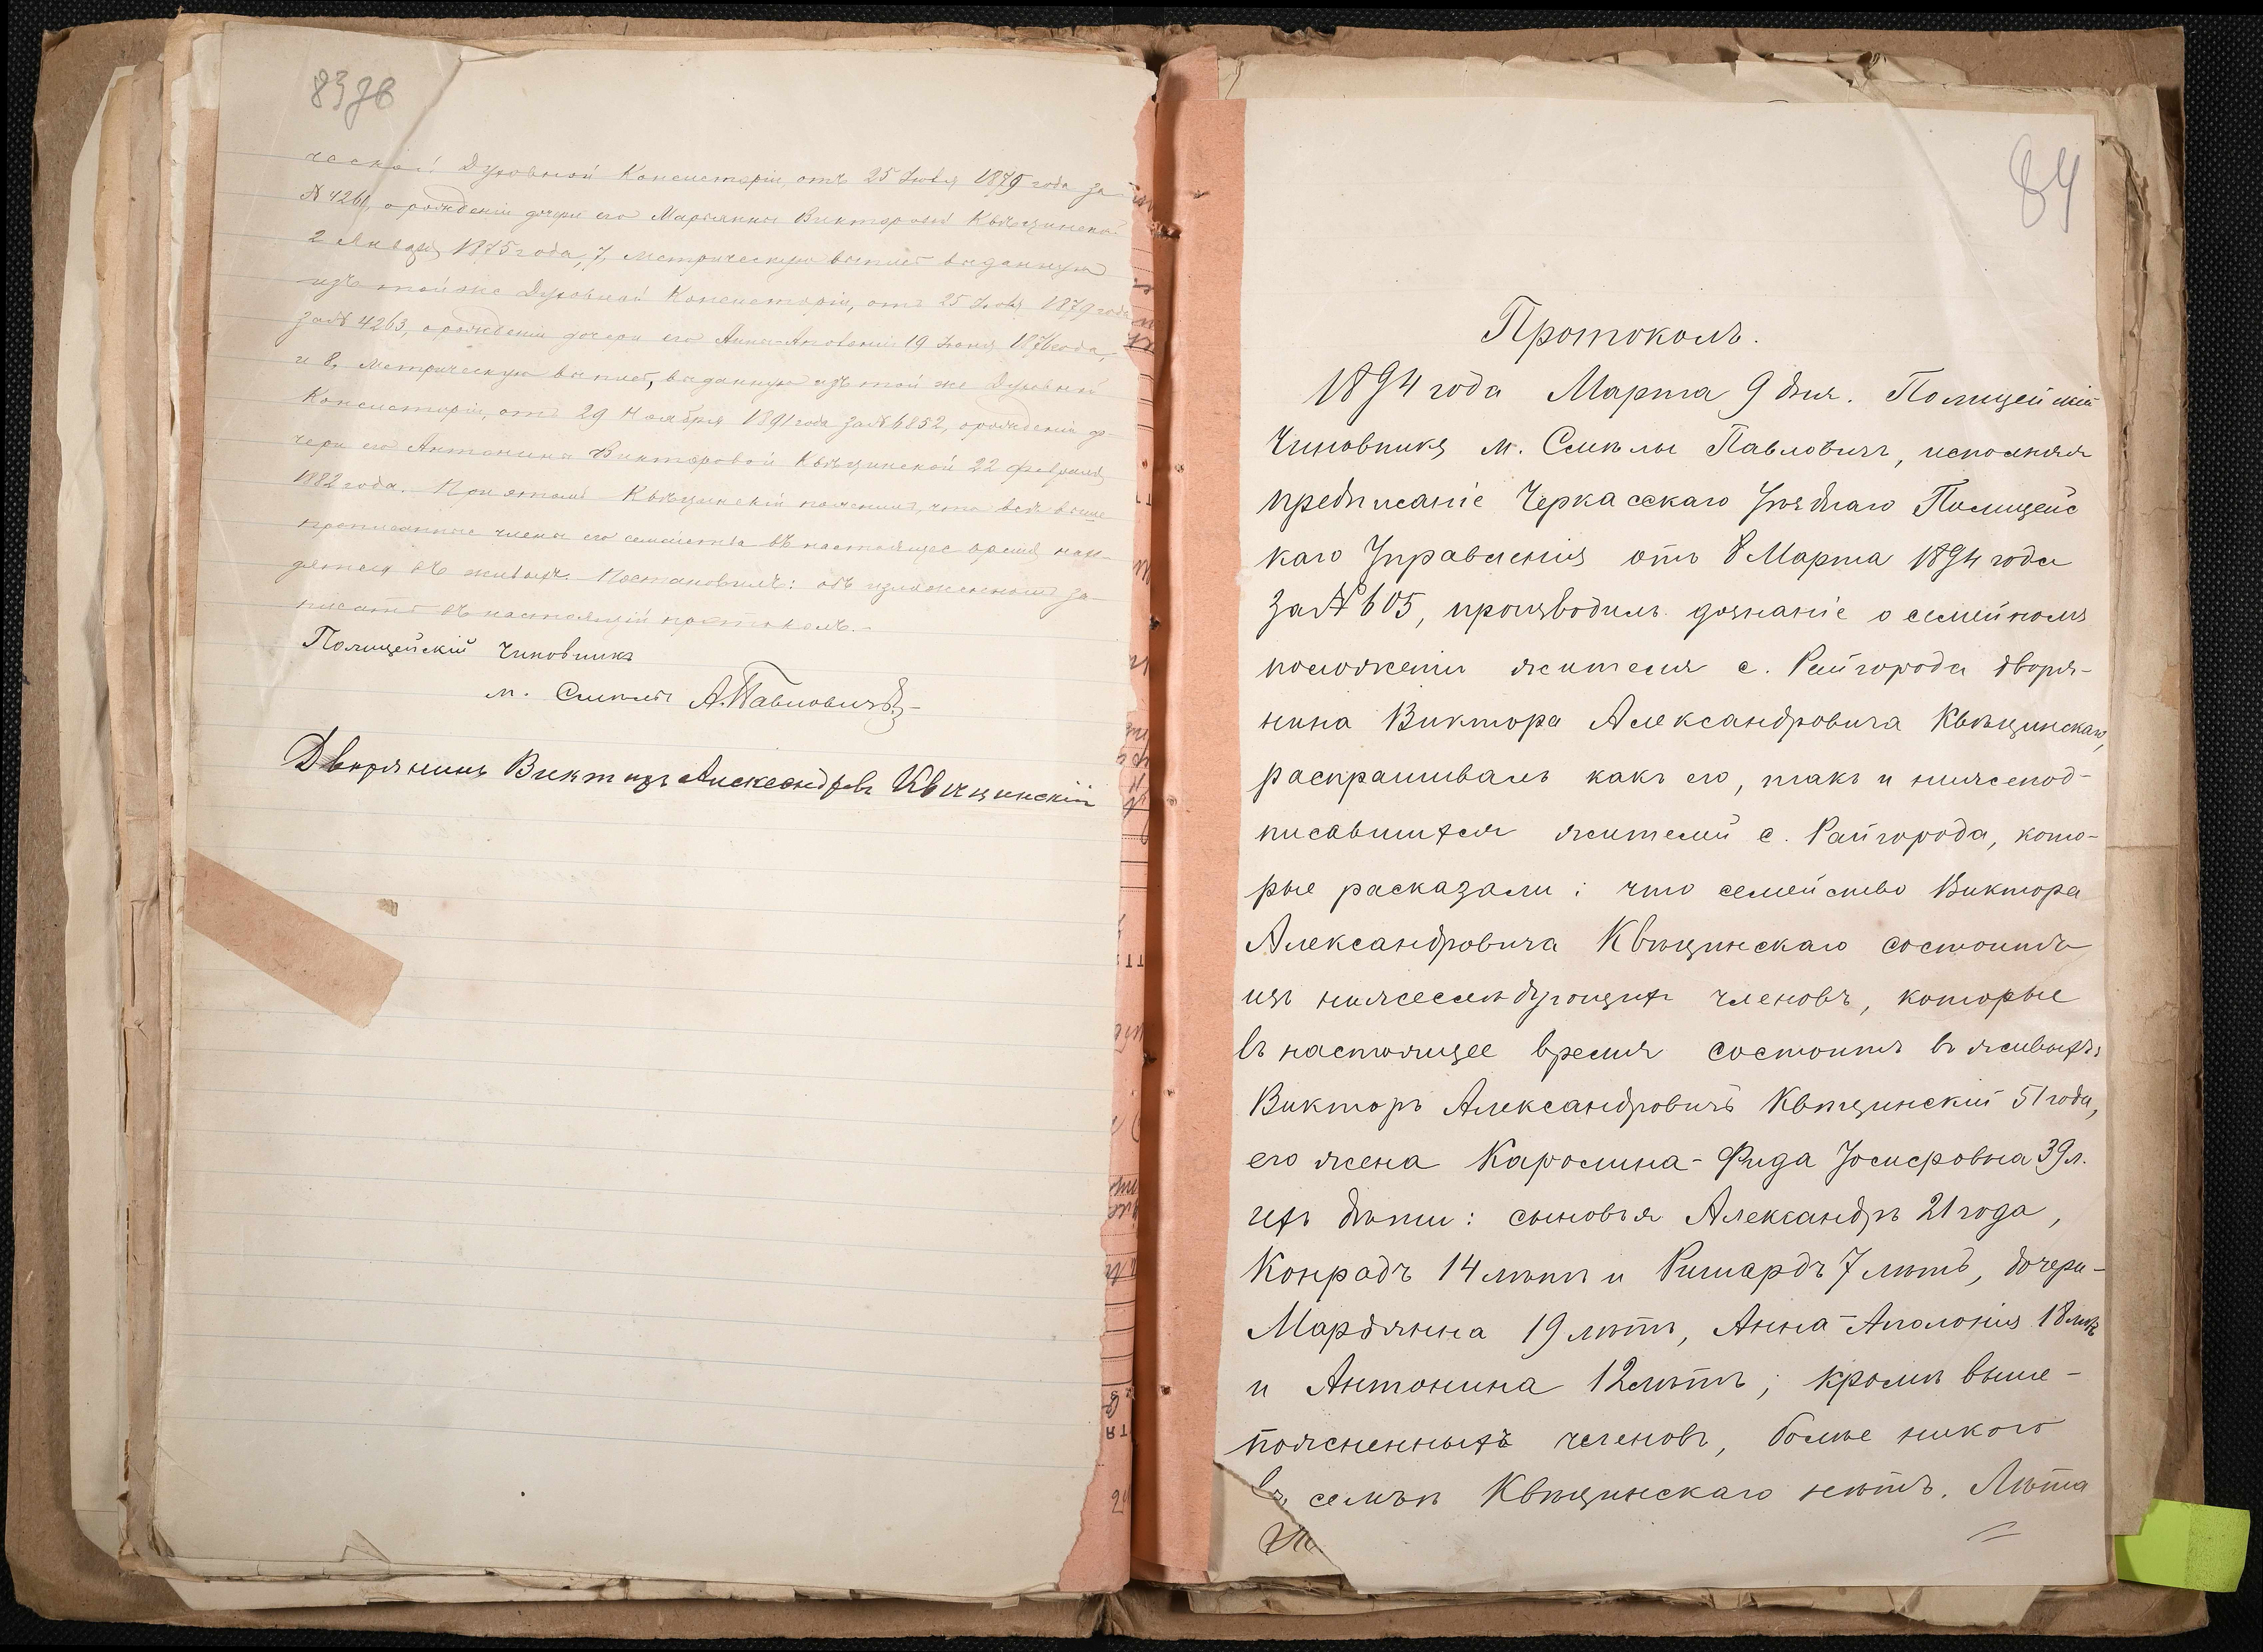 83зв
ческой Духовной Консисторіи, отъ 25 Іюля 1879 года за
№ 4261, о рожденіи дочери его Марьянны Викторовой Квѣцинской
2 Января 1875 года, 7, метрическую выпись выданную
изъ той же Духовной Консисторіи, отъ 25 Іюля 1879 года
за № 4263, о рожденіи дочери его Анны-Аполоніи 19 Іюня 1876 года,
и 8, метрическую выпись, выданную изъ той же Духовной
Консисторіи, отъ 29 Ноября 1891 года за № 6852, о рожденіи до-
чери его Антонины Викторовой Квѣцинской 22 февраля
1882 года. При этомъ Квѣцинскій пояснилъ, что всѣ выше
прописанные члены его семейства въ настоящее время нахо-
дятся въ живыхъ. Постановилъ: объ изложенномъ за-
писать въ настоящій протоколъ.-
Полицейскій Чиновникъ
м. Смѣлы А. Павловичъ
Дворянинъ Викторъ Александровъ Квѣцинскій
84
Протоколъ.
1894 года Марта 9 дня. Полицейскій
Чиновникъ м. Смѣлы Павловичъ, исполняя
предписаніе Черкасскаго Уѣзднаго Полицейс
каго Управленія отъ 8 Марта 1894 года
за № 605, производилъ дознаніе о семейномъ
положеніи жителя с. Райгорода дворя-
нина Виктора Александровича Квѣцинскаго,
распрашивалъ какъ его, такъ и нижепод-
писавшихся жителей с. Райгорода, кото-
рые расказали: что семейство Виктора
Александровича Квѣцинскаго состоитъ
изъ нижеслѣдующихъ членовъ, которые
въ настоящее время состоитъ въ живыхъ:
Викторъ Александровичъ Квѣцинскій 51 года,
его жена Каролина-Фида Іосифовна 39 л.
ихъ дѣти: сыновья Александръ 21 года,
Конрадъ 14 лѣтъ и Ришардъ 7 лѣтъ, дочери-
Марьянна 19 лѣтъ, Анна-Аполонія 18 лѣтъ
и Антонина 12 лѣтъ; кромѣ выше-
поясненныхъ членовъ, болѣе никого
въ семьѣ Квѣцинскаго нѣтъ. Лѣта